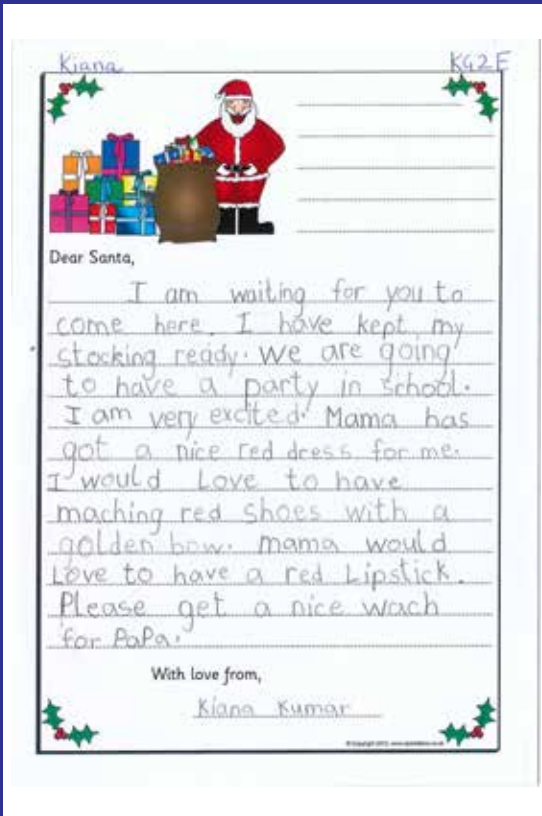 Kiana KG2E
Dear Santa,
I am waiting for you to
come here. I have kept my
stocking ready. We are going
to have a party in school.
I am very excited. Mama has
got a nice red dress for me.
I would Love to have
maching red shoes with a
golden bow. mama would
Love to have a red Lipstick.
Please get a nice wach
for PaPa.
With love from,
Kiana Kumar